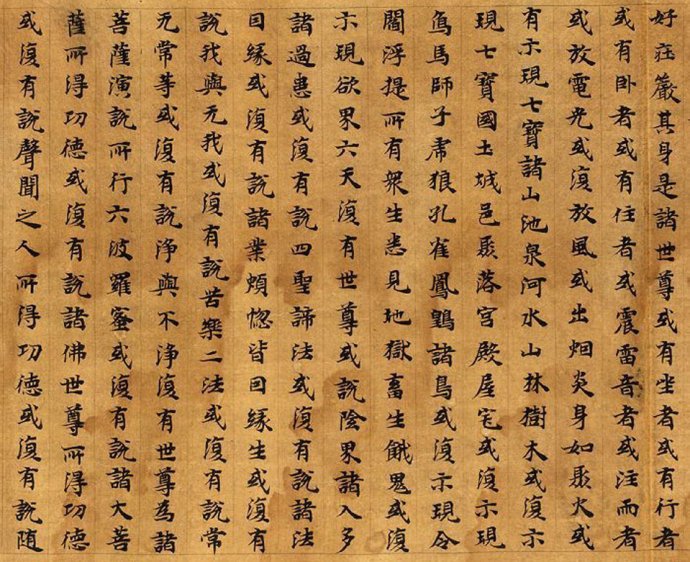 好莊嚴其身是諸世尊或有坐者或有行者
或有卧者或有住者或震雷音者或注雨者
或放電光或復放風或出烟炎身如聚火或
有示現七寶諸山池泉河水山林樹木或復示
現七寶國土城邑聚落宮殿屋宅或復示現
象馬師子虎狼孔雀鳳凰諸鳥或復示現令
閻浮提所有衆生悉見地獄畜生餓鬼或復
示現欲界六天復有世尊或說陰界諸入多
諸過患或復有說四聖諦法或復有說諸法
因緣或復有說諸業煩惱皆因緣生或復有
說我與无我或復有說苦樂二法或復有說常
无常等或復有說淨與不淨復有世尊為諸
菩薩演說所行六波羅蜜或復有說諸大菩
薩所得功德或復有說諸佛世尊所得功德
或復有說聲聞之人所得功德或復有說隨